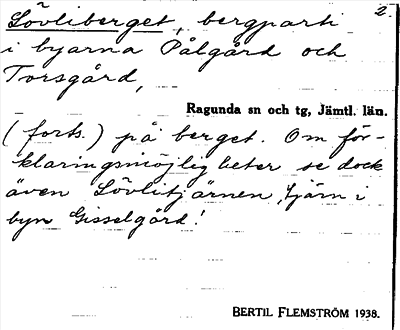 Lövliberget, bergparti 2.
i byarna Pålgård och
Torsgård,
Ragunda sn och tg, Jämtl. län.
(forts.) på berget. Om för-
klaringsmöjligheter se dock
även Lövlitjärnen, tjärn i
byn Gisselgård!
BERTIL FLEMSTRÖM 1938.